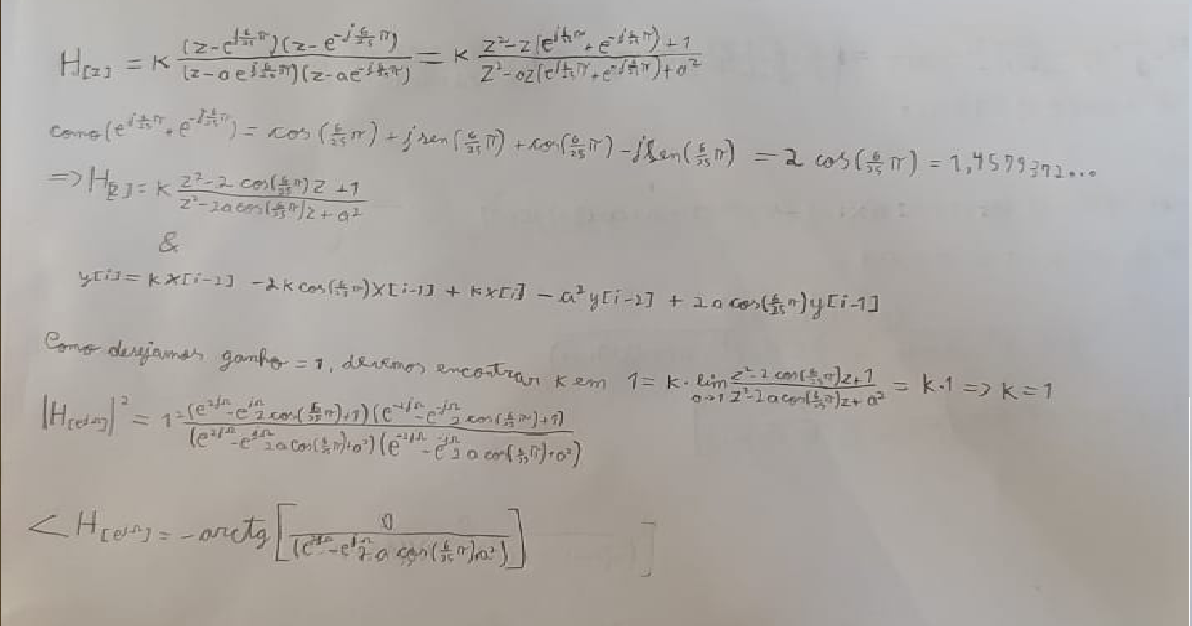 H[z] = K (z-e^{j6/25π})(z-e^{-j6/25π}) / (z-ae^{j6/25π})(z-ae^{-j6/25π}) = K z²-z(e^{j6/25π}+e^{-j6/25π})+1 / z²-az(e^{j6/25π}+e^{-j6/25π})+a²
como (e^{j6/25π}+e^{-j6/25π}) = cos(6/25π)+jsen(6/25π)+cos(6/25π)-jsen(6/25π) = 2 cos(6/25π) = 1,4579372...
=> H[z] = K z²-2cos(6/25π)z+1 / z²-2acos(6/25π)z+a²
&
y[i] = Kx[i-2] -2Kcos(6/25π)x[i-1] + Kx[i] - a²y[i-2] + 2acos(6/25π)y[i-1]
Como desejamos ganho = 1, devemos encontrar K em 1 = K·lim a→1 z²-2cos(6/25π)z+1 / z²-2acos(6/25π)z+a² = K·1 => K=1
|H[e^{jΩ}]|² = 1² (e^{2jΩ}-e^{jΩ}2cos(6/25π)+1)(e^{-2jΩ}-e^{-jΩ}2cos(6/25π)+1) / (e^{2jΩ}-e^{jΩ}2acos(6/25π)+a²)(e^{-2jΩ}-e^{-jΩ}2acos(6/25π)+a²)
< H[e^{jΩ}] = -arctg[ 0 / (e^{2jΩ}-e^{jΩ}2acos(6/25π)a²) ] ]